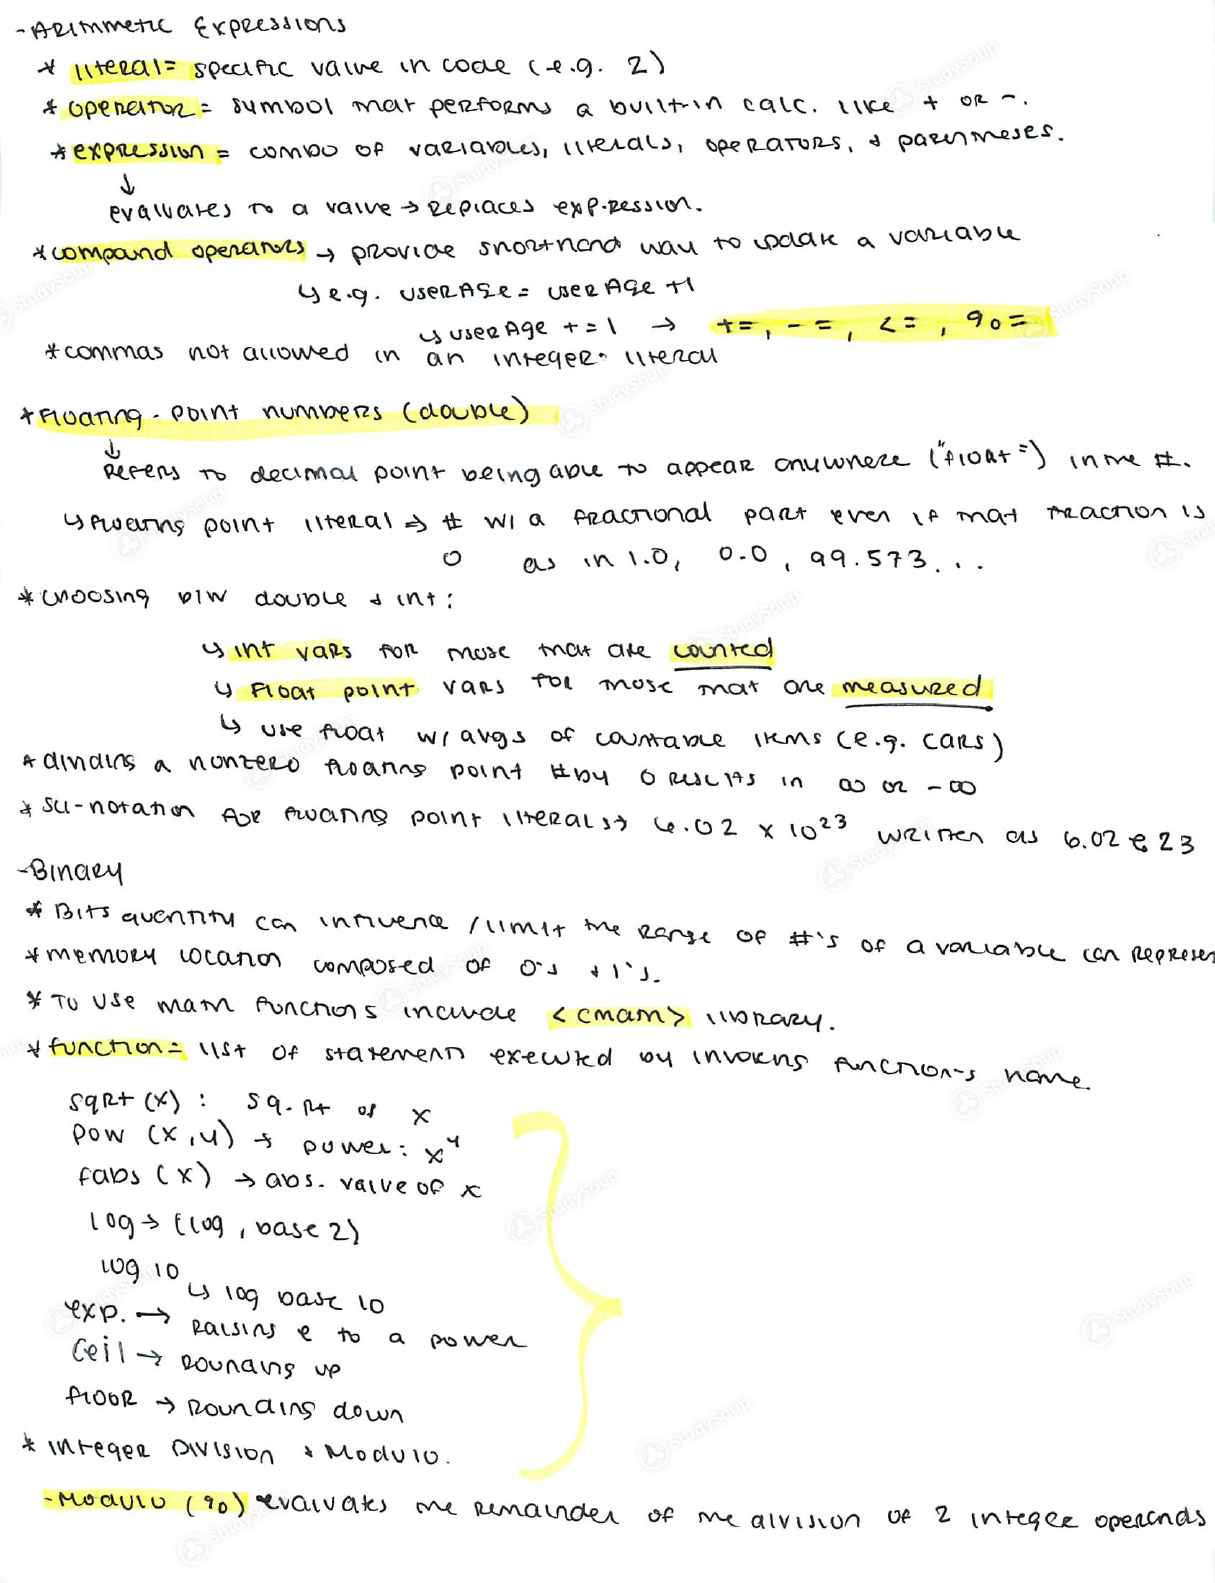 - Arithmetic Expressions
* literal = specific value in code (e.g. 2)
* operator = symbol that performs a built-in calc. like + or -.
* expression = combo of variables, literals, operators, & parentheses.
↓
evaluates to a value → replaces exp.ression.
* compound operators → provide shorthand way to update a variable
↳ e.g. userAge = userAge +1
↳ userAge + = 1 → + =, - =, < =, % =
* commas not allowed in an integer literal
* Floating-point numbers (double)
↓
Refers to decimal point being able to appear anywhere ("float") in the #.
↳ floating point literal → # w/ a fractional part even if that fraction is
0 as in 1.0, 0.0, 99.573...
* choosing b/w double & int:
↳ int vars for those that are counted
↳ Float point vars for those that are measured
↳ use float w/ avgs of countable items (e.g. cars)
* dividing a nonzero floating point # by 0 results in ∞ or -∞
* sci-notation for floating point literals → 6.02 x 10^23 written as 6.02 e 23
- Binary
* Bits quantity can influence / limit the range of #'s of a variable can represen
* memory location composed of 0's & 1's.
* To use math functions include <cmath> library.
* function = list of statements executed by invoking function's name.
sqrt (x) : sq. rt of x
pow (x,y) → power: x^y
fabs (x) → abs. value of x
log → (log, base 2)
log 10
↳ log base 10
exp. → raising e to a power
Ceil → rounding up
floor → rounding down
* Integer Division & Modulo.
- Modulo (%) evaluates the remainder of the division of 2 integer operands
StudySoup